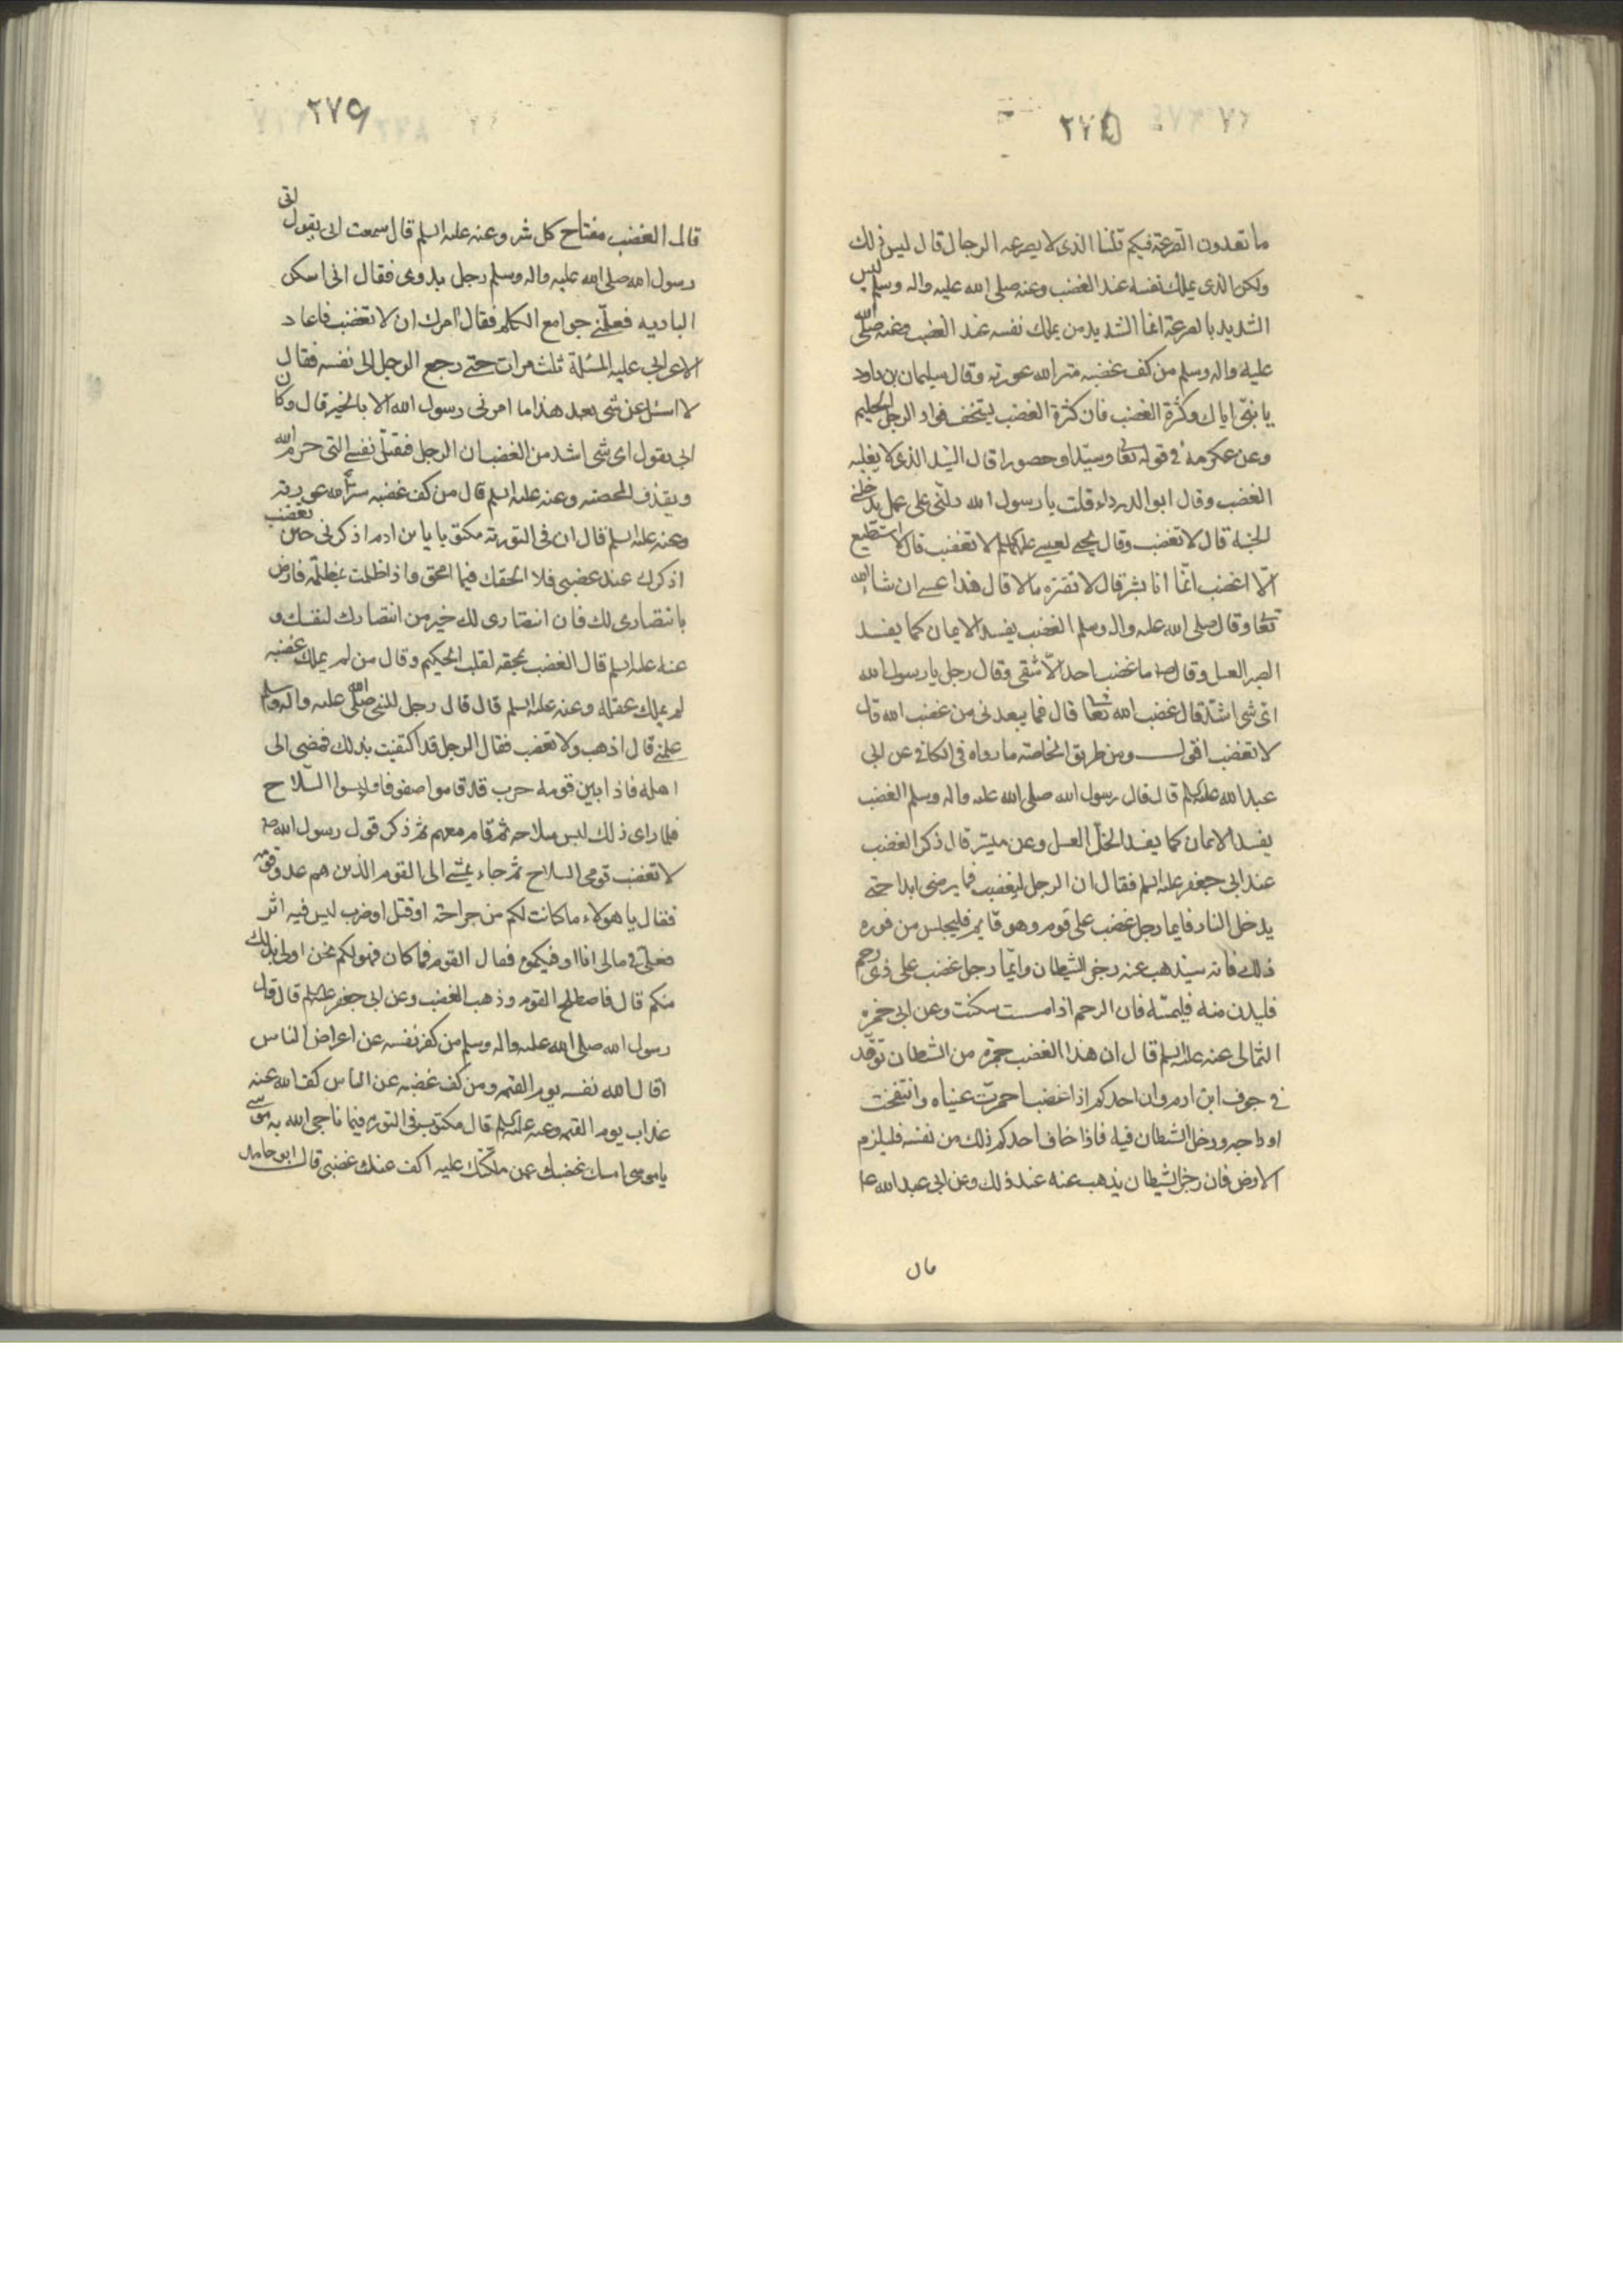 ٢٧٥
ما تعدون الصرعة فيكم قلنا الذى لا يصرعه الرجال قال ليس ذلك
ولكن الذى يملك نفسه عند الغضب وعنه صلى الله عليه واله وسلم ليس
الشديد بالصرعة انما الشديد من يملك نفسه عند الغضب وعنه صلى الله
عليه واله وسلم من كف غضبه ستر الله عورته وقال سليمان بن داود
يا بنى اياك وكثرة الغضب فان كثرة الغضب يستخف فواد الرجل الحليم
وعن عكرمة فى قوله تعا وسيّدا وحصورا قال السّيد الذى لا يغلبه
الغضب وقال ابو الدرداء قلت يا رسول الله دلّنى على عمل يدخلنى
الجنة قال لا تغضب وقال يحيى لعيسى عليهما السلم لا تغضب قال لا استطيع
الّا اغضب انّما انا بشر قال لا تقتن مالا قال هذا عسى ان شاء الله
تعا وقال صلى الله عليه واله وسلم الغضب يفسد الايمان كما يفسد
الصبر العسل وقال ص ما غضب احد الّا اشقى وقال رجل يا رسول الله
اى شى اشدّ قال غضب الله تعا قال فما يبعدنى من غضب الله قال
لا تغضب اقول ومن طريق الخاصة ما رواه فى الكافى عن ابى
عبد الله عليه السلم قال قال رسول الله صلى الله عليه واله وسلم الغضب
يفسد الايمان كما يفسد الخلّ العسل وعن ميسّر قال ذكر الغضب
عند ابى جعفر عليه السلم فقال ان الرجل ليغضب فما يرضى ابدا حتى
يدخل النار فايما رجل غضب على قوم وهو قايم فليجلس من فوره
ذلك فانه سيذهب عنه رجز الشيطان وايّما رجل غضب على ذى رحم
فليدن منه فليمسّه فان الرحم اذا مست سكنت وعن ابى حمزه
الثمالى عنه عليه السلم قال ان هذا الغضب جمرة من الشيطان توقّد
فى جوف ابن ادم وان احدكم اذا غضب احمرّت عيناه وانتفخت
اوداجه ودخل الشيطان فيه فاذا خاف احدكم ذلك من نفسه فليلزم
الارض فان رجز الشيطان يذهب عنه عند ذلك وعن ابى عبد الله ع
قال
٢٧٩
قال الغضب مفتاح كل شر وعنه عليه السلم قال سمعت ابى يقول اتى
رسول الله صلى الله عليه واله وسلم رجل بدوى فقال انى اسكن
الباديه فعلّمنى جوامع الكلم فقال امرك ان لا تغضب فاعاد
الاعرابى عليه المسئلة ثلث مرات حتى رجع الرجل الى نفسه فقال
لا اسئل عن شى بعد هذا ما امرنى رسول الله الا بالخير قال وكان
ابى يقول اى شى اشد من الغضب ان الرجل فقتل نفس التى حرم الله
ويقذف المحصنه وعنه عليه السلم قال من كف غضبه ستر الله عورته
وعنه عليه السلم قال ان فى التورية مكتوبا يا بن ادم اذكرنى حين تغضب
اذكرك عند غضبى فلا امحقك فيما امحق واذا ظلمت بمظلمة فارض
بانتصارى لك فان انتصارى لك خير من انتصارك لنفسك و
عنه عليه السلم قال الغضب ممحقه لقلب الحكيم وقال من لم يملك غضبه
لم يملك عقله وعنه عليه السلم قال قال رجل للنبى صلى الله عليه واله وسلم
علمنى قال اذهب ولا تغضب فقال الرجل قد اكتفيت بذلك فمضى الى
اهله فاذا بين قومه حرب قد قاموا صفوفا ولبسوا السّلاح
فلما راى ذلك لبس سلاحه ثم قام معهم ثم ذكر قول رسول الله ص
لا تغضب فرمى السلاح ثم جاء يمشى الى القوم الذين هم عدو قومه
فقال يا هولاء ما كانت لكم من جراحة او قتل او ضرب ليس فيه اثر
فعلىّ فى مالى انا اوفيكموه فقال القوم فما كان فهو لكم نحن اولى بذلك
منكم قال فاصطلح القوم وذهب الغضب وعن ابى جعفر عليه السلم قال قال
رسول الله صلى الله عليه واله وسلم من كف نفسه عن اعراض الناس
اقال الله نفسه يوم القيمه ومن كف غضبه عن الناس كف الله عنه
عذاب يوم القيمه وعنه عليه السلم قال مكتوب فى التورية فيما ناجى الله به موسى
يا موسى امسك غضبك عمن ملّكتك عليه اكف عنك غضبى قال ابو حامد